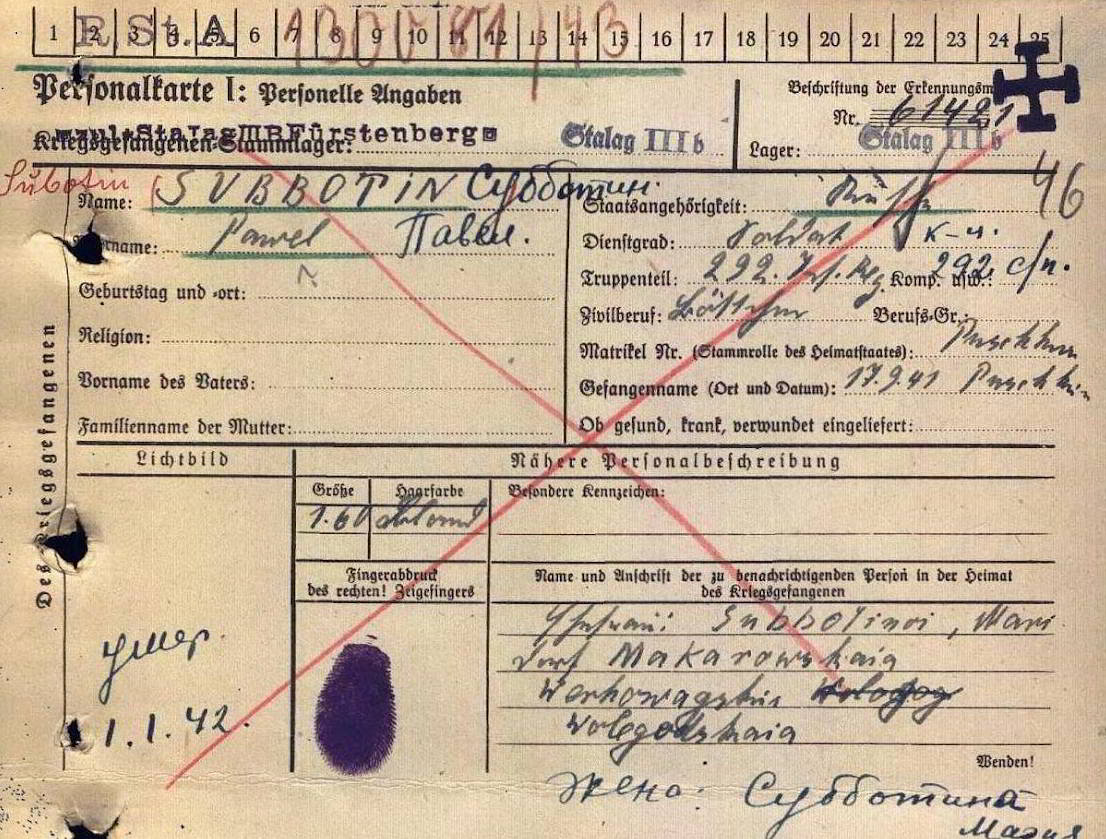 1 2 3 4 5 6 7 8 9 10 11 12 13 14 15 16 17 18 19 20 21 22 23 24 25
R.St.A
Personalkarte I: Personelle Angaben
Beschriftung der Erkennungsm
Nr. 61421
Kriegsgefangenen-Stammlager: Stalag IIIB Fürstenberg Stalag III b
Lager: Stalag III b
46
Subotin
Name: SUBBOTIN Субботин.
Staatsangehörigkeit: Russe
Vorname: Pawel Павел.
Dienstgrad: Soldat к-ц.
Truppenteil: 292. Inf. Reg Komp. usw.: 292. с/п.
Geburtstag und -ort:
Zivilberuf: Böttcher Berufs-Gr.:
Religion:
Matrikel Nr. (Stammrolle des Heimatstaates): Puschkin
Vorname des Vaters:
Gefangenname (Ort und Datum): 17.9.41 Puschkin
Familienname der Mutter:
Ob gesund, krank, verwundet eingeliefert:
Des Kriegsgefangenen
Lichtbild
Nähere Personalbeschreibung
Größe Haarfarbe Besondere Kennzeichen:
1.60 blond
Fingerabdruck
des rechten! Zeigefingers
Name und Anschrift der zu benachrichtigenden Person in der Heimat
des Kriegsgefangenen
Ehefrau: Subbotinoi, Mari
Dorf Makarowskaia
Werhowagskii
Wologodskaia
умер.
1.1.42.
Wenden!
Жена: Субботина